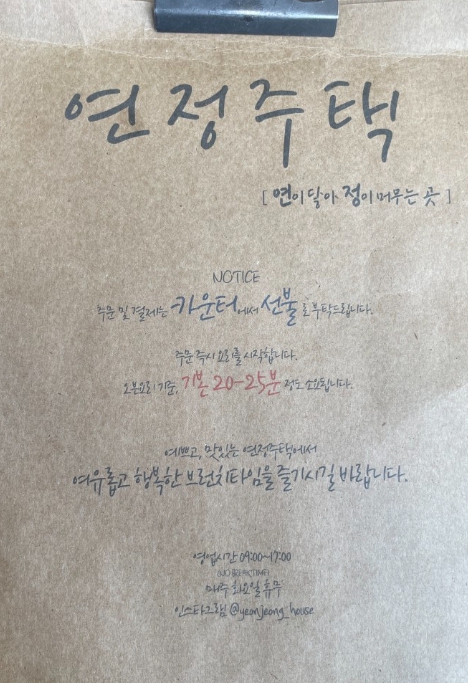 연정주택
[ 연이 닿아 정이 머무는 곳 ]
NOTICE
주문 및 결제는 카운터에서 선불로 부탁드립니다.
주문 즉시 요리를 시작합니다.
오븐요리 기준, 기본 20-25분 정도 소요됩니다.
예쁘고, 맛있는 연정주택에서
여유롭고 행복한 브런치타임을 즐기시길 바랍니다.
영업시간 09:00~17:00
(NO BREAKTIME)
매주 화요일 휴무
인스타그램 @yeonjeong_house